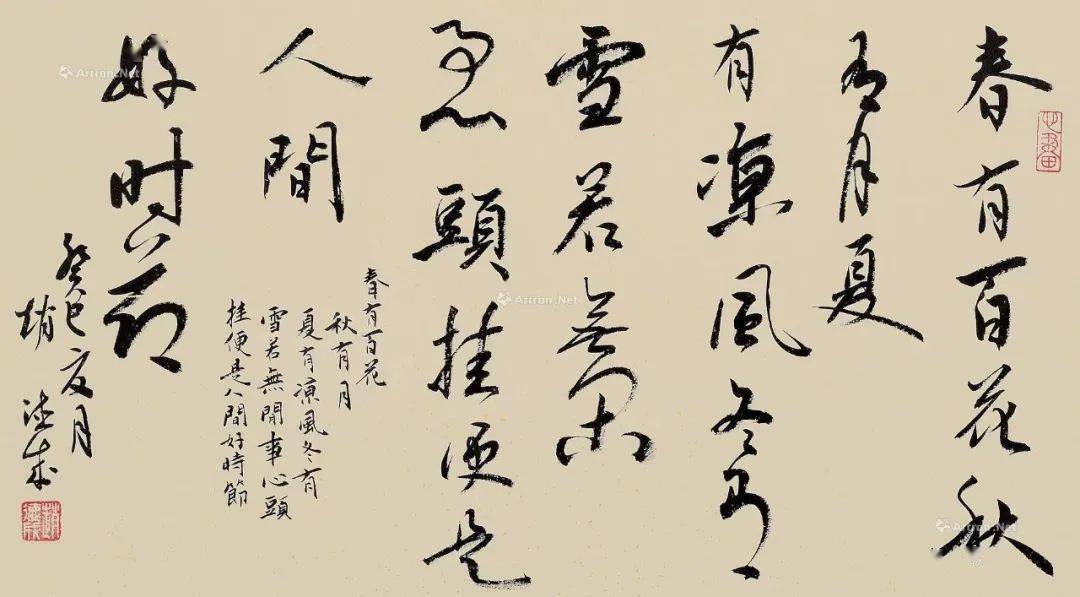 春有百花秋
有月夏
有凉風冬有
雪若無閒
事心頭挂便是
人間
好时節
春有百花
秋有月
夏有凉風冬有
雪若無閒事心頭
挂便是人間好時節
癸巳夏月
趙德成
心畫
趙德成
Artron.Net
Artron.Net
Artron.Net
Artron.Net